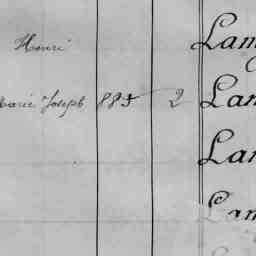 Henri Lam
Marie Joseph 885 2 Lam
Lam
Lam